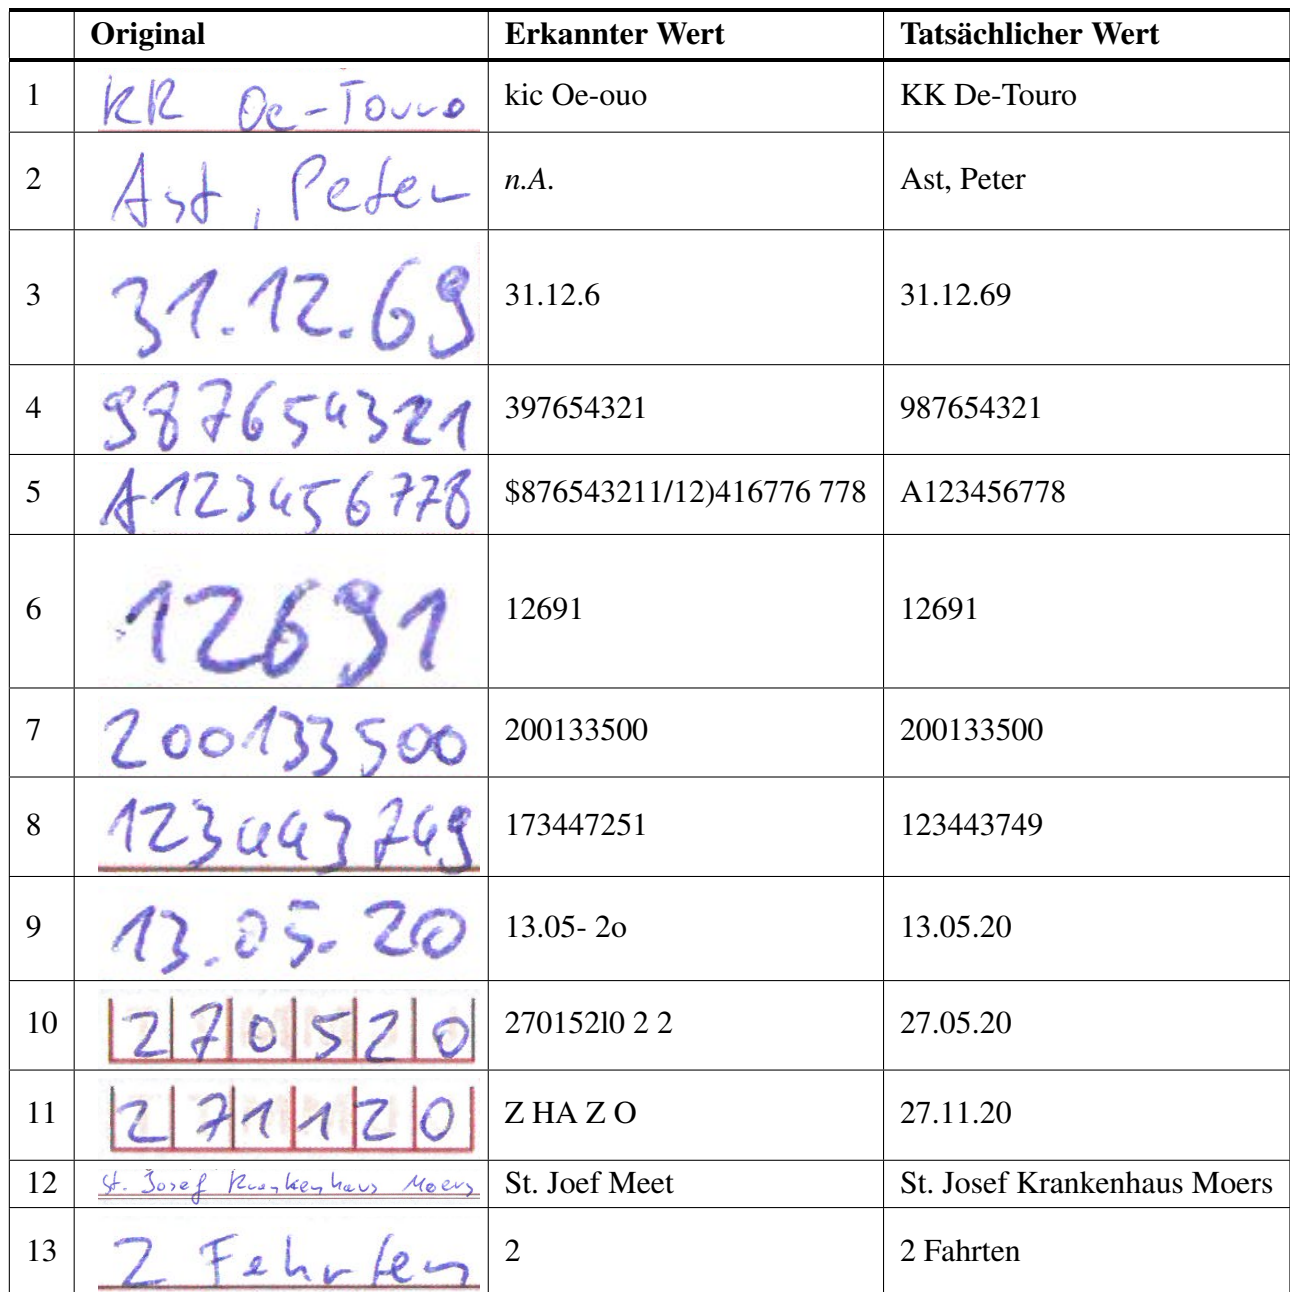 Original Erkannter Wert Tatsächlicher Wert
1 KK Oe-Touro kic Oe-ouo KK De-Touro
2 Ast, Peter n.A. Ast, Peter
3 31.12.69 31.12.6 31.12.69
4 987654321 397654321 987654321
5 A123456778 $876543211/12)416776 778 A123456778
6 12691 12691 12691
7 200133500 200133500 200133500
8 123443749 173447251 123443749
9 13.05.20 13.05- 2o 13.05.20
10 270520 270152l0 2 2 27.05.20
11 271120 Z HA Z O 27.11.20
12 St. Josef Krankenhaus Moers St. Joef Meet St. Josef Krankenhaus Moers
13 2 Fahrten 2 2 Fahrten